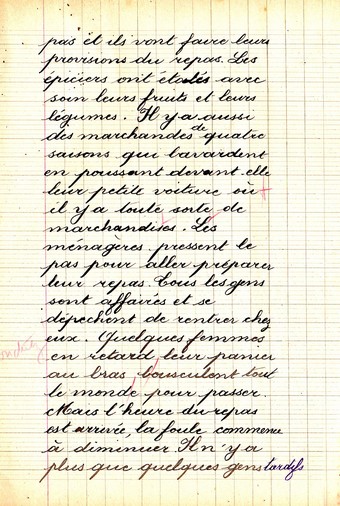 pas et ils vont faire leurs
provisions du repas. Les
épiciers ont étalés avec
soin leurs fruits et leurs
légumes. Il y a aussi
des marchandes de quatre
saisons qui bavardent
en poussant devant elle
leur petite voiture où
il y a toute sorte de
marchandises. Les
ménagères pressent le
pas pour aller préparer
leur repas. Tous les gens
sont affairés et se
dépechent de rentrer chez
eux. Quelques femmes
en retard leur panier
au bras bousculent tout
le monde pour passer.
Mais l'heure du repas
est arrivée, la foule commence
à diminuer Il n'y a
plus que quelques gens tardifs